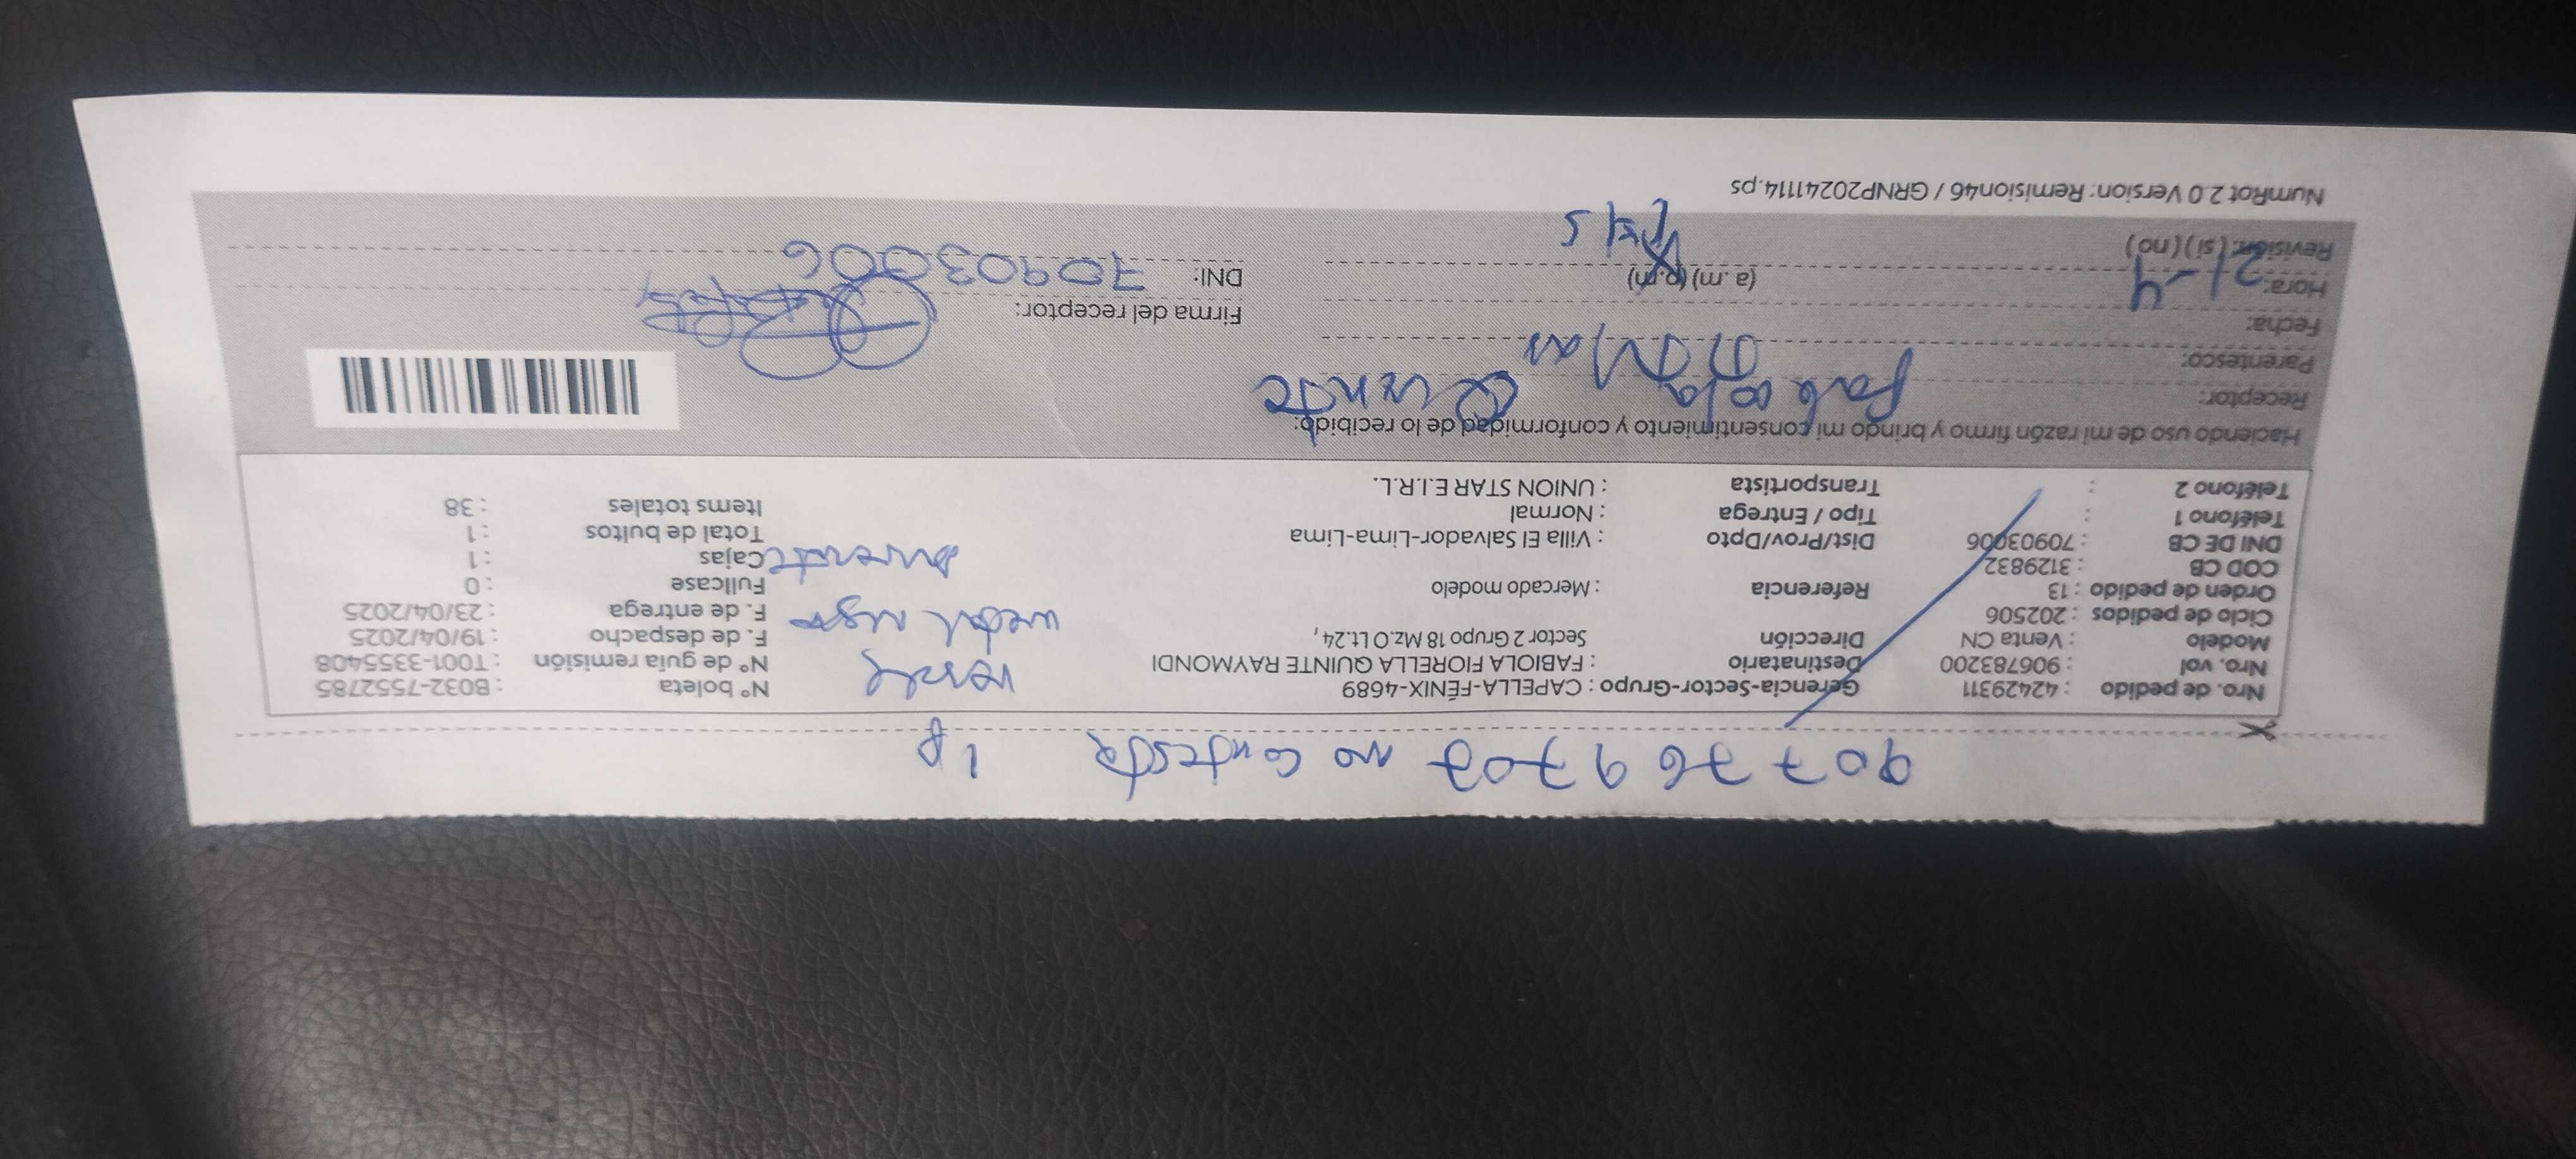 907769707 no contesta 1P
Nro. de pedido : 42429311 Gerencia-Sector-Grupo : CAPELLA-FÉNIX-4689 N° boleta : B032-7552785
Nro. vol : 906783200 Destinatario : FABIOLA FIORELLA QUINTE RAYMONDI verde N° de guía remisión : T001-3355408
Modelo : Venta CN Dirección Sector 2 Grupo 18 Mz.O Lt.24, F. de despacho : 19/04/2025
Ciclo de pedidos : 202506 F. de entrega : 23/04/2025
Orden de pedido : 13 Referencia : Mercado modelo Fullcase : 0
COD CB : 3129832 Cajas : 1
DNI DE CB : 70903006 Dist/Prov/Dpto : Villa El Salvador-Lima-Lima Total de bultos : 1
Teléfono 1 : Tipo / Entrega : Normal Items totales : 38
Teléfono 2 : Transportista : UNION STAR E.I.R.L.
Haciendo uso de mi razón firmo y brindo mi consentimiento y conformidad de lo recibido:
Receptor: Fabiola Quinte
Parentesco:
Fecha: Firma del receptor:
Hora: 21-4 (a.m) (p.m) DNI: 70903006
Revisión: (si) (no)
NumRot 2.0 Version: Remision46 / GRNP20241114.ps